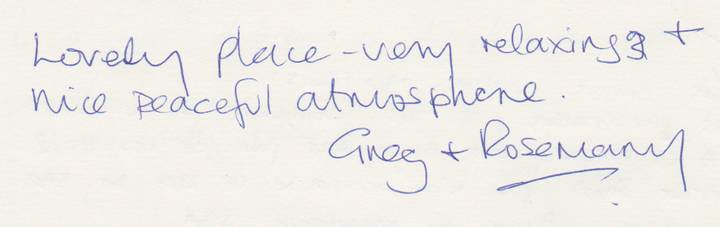 Lovely place - very relaxing +
nice peaceful atmosphere.
Greg + Rosemary